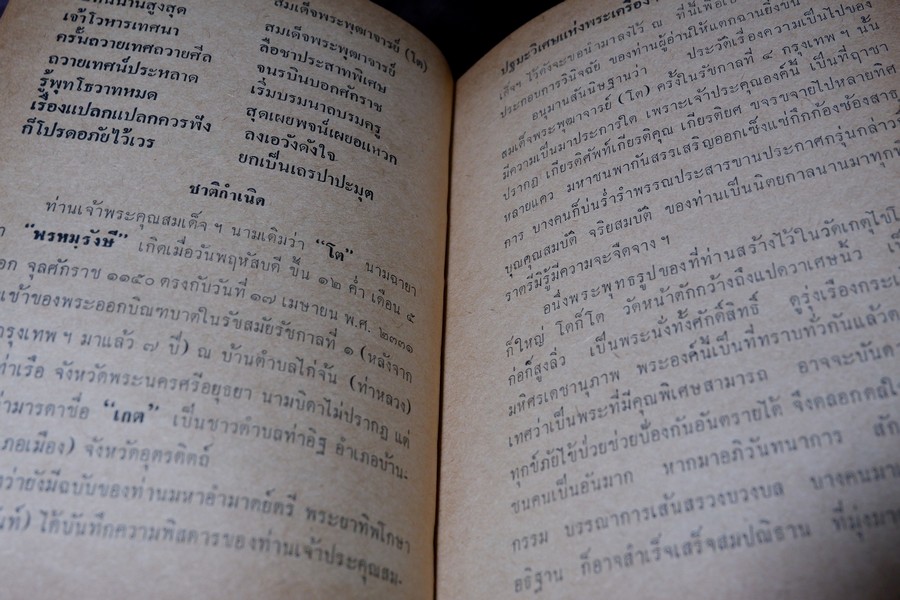 สมเด็จพระพุฒาจารย์ (โต)
เจ้าโวหารเทศนา ลือชาประสาทพิเศษ
ครั้นถวายเทศถวายศีล จนรบินบอกศักราช
ถวายเทศน์ประหลาด เริ่มบรมนาถบรมครู
รู้พุทโธวาทหมด สุดเผยพจน์เผยอแหวก
เรื่องแปลกแปลกควรฟัง ลงเอวังดังใจ
ก็โปรดอภัยไว้เวร ยกเป็นเถรปาปะมุต
ชาติกำเนิด
ท่านเจ้าพระคุณสมเด็จ ฯ นามเดิมว่า “โต” นามฉายา
“พรหมรังษี” เกิดเมื่อวันพฤหัสบดี ขึ้น ๑๒ ค่ำ เดือน ๕
จุลศักราช ๑๑๕๐ ตรงกับวันที่ ๑๗ เมษายน พ.ศ. ๒๓๓๑
เช้าของพระออกบิณฑบาตในรัชสมัยรัชกาลที่ ๑ (หลังจาก
กรุงเทพ ฯ มาแล้ว ๗ ปี) ณ บ้านตำบลไก่จ้น (ท่าหลวง)
ท่าเรือ จังหวัดพระนครศรีอยุธยา นามบิดาไม่ปรากฏ แต่
มารดาชื่อ “เกต” เป็นชาวตำบลท่าอิฐ อำเภอบ้าน-
(อำเภอเมือง) จังหวัดอุตรดิตถ์
ว่ายังมีฉบับของท่านมหาอำมาตย์ตรี พระยาทิพโกษา
ได้บันทึกความพิสดารของท่านเจ้าประคุณสม-
ปฐมะวิเศษแห่งพระเครื่อง
เสด็จฯ ไว้ดังจะขอนำมาลงไว้ ณ ที่นี้เพื่อ
ประกอบการวินิจฉัย ของท่านผู้อ่านให้แตกฉานยิ่งขึ้น
อนุมานสันนิษฐานว่า ประวัติเรื่องความเป็นไปของ
สมเด็จพระพุฒาจารย์ (โต) ครั้งในรัชกาลที่ ๔ กรุงเทพ ฯ นั้น
มีความเป็นมาประการใด เพราะเจ้าประคุณองค์นี้ เป็นที่ฤาชา
ปรากฏ เกียรติศัพท์เกียรติคุณ เกียรติยศ ขจรขจายไปหลายทิศ
หลายแคว มหาชนพากันสรรเสริญออกเซ็งแซ่กึกก้องซ้องสาธุ
การ บางคนก็บ่นร่ำรำพรรณประสารขานประกาศกรุ่นกล่าวถึง
บุญคุณสมบัติ จริยสมบัติ ของท่านเป็นนิตยกาลนานมาทุกทิ
ราตรีมิรู้มีความจะจืดจาง ฯ
อนึ่งพระพุทธรูปของที่ท่านสร้างไว้ในวัดเกตุไชโย
ก็ใหญ่ โตก็โต วัดหน้าตักกว้างถึงแปดวาเศษนิ้ว
ก่อก็สูงลิ่ว เป็นพระนั่งทั้งศักดิ์สิทธิ์ ดูรุ่งเรืองกระ
มหิศรเดชานุภาพ พระองค์นี้เป็นที่ทราบทั่วกันแล้วต
เทศว่าเป็นพระที่มีคุณพิเศษสามารถ อาจจะบันด
ทุกข์ภัยไข้ป่วยช่วยป้องกันอันตรายได้ จึงดลอกดลใ
ชนคนเป็นอันมาก หากมาอภิวันทนาการ สัก
กรรม บรรณาการเส้นสรวงบวงบล บางคนมา
อธิฐาน ก็อาจสำเร็จเสร็จสมปณิธาน ที่มุ่งมา